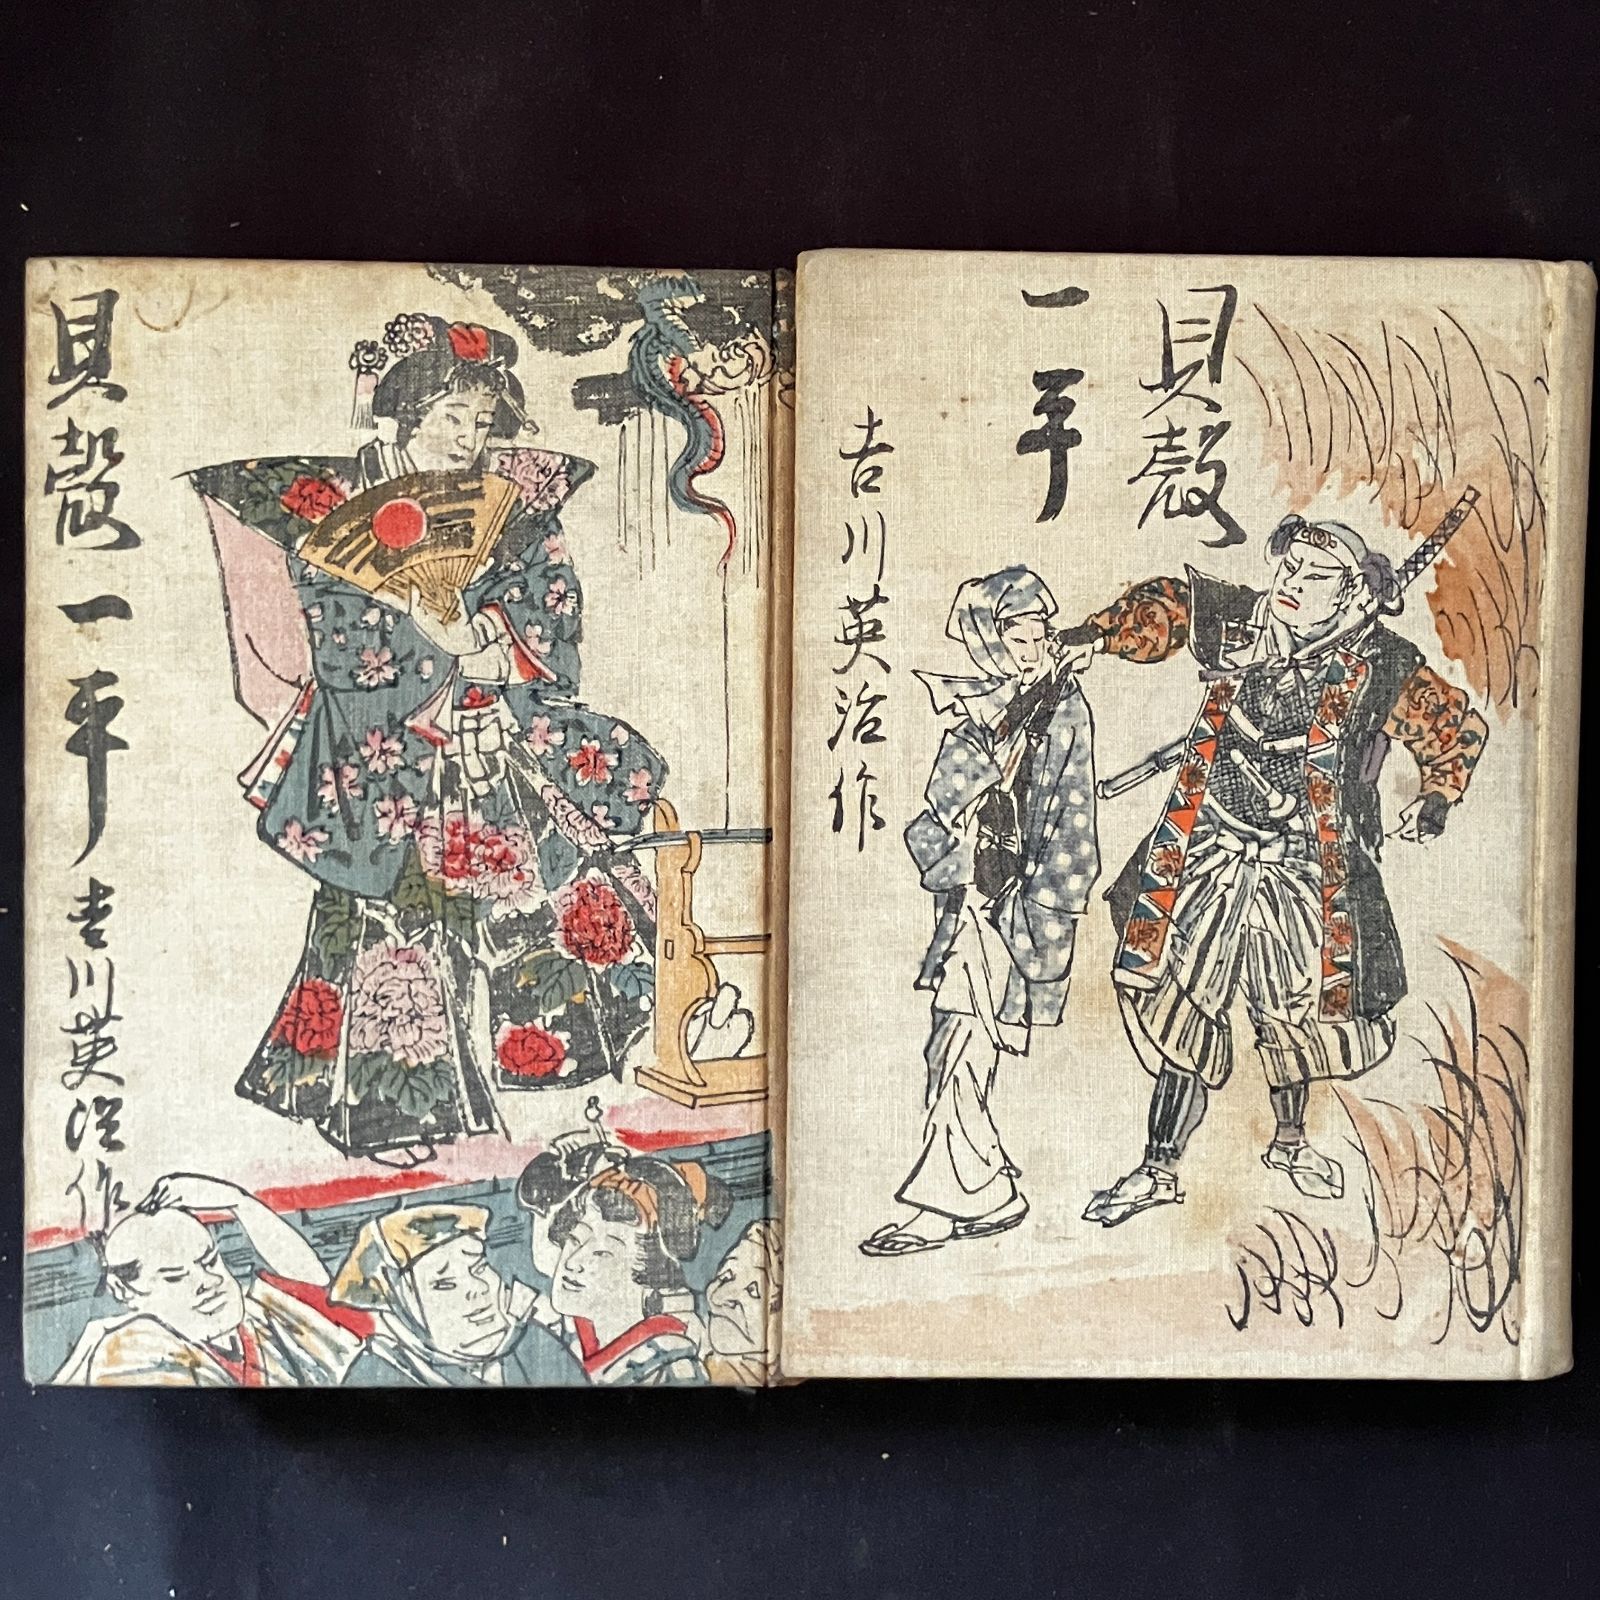 貝殻一平
吉川英治作
貝殻
一平
吉川英治作